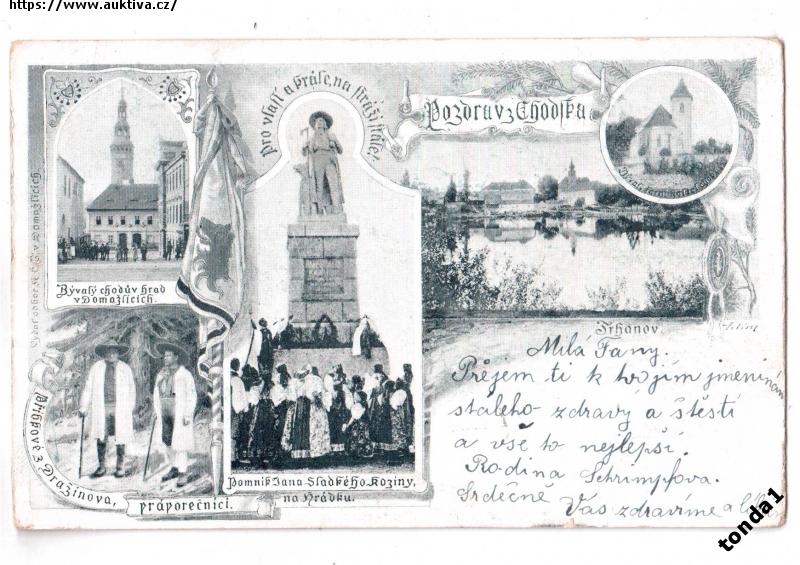 https://www.auktiva.cz/
Pro vlast a krále, na stráži stále!
Pozdrav z Chodska
Bývalý chodův hrad
v Domažlicích.
Vydal odbor N.J.P. v Domažlicích.
Trhanov.
z Dražinova,
práporečníci.
Pomník Jana Sladkého Koziny,
na Hrádku.
Milá Fany.
Přejem ti k tvojím jmeninám
stálého zdravý a štěstí
a vše to nejlepší.
Rodina Schrimpfova.
Srdečně Vás zdravíme a
tonda1